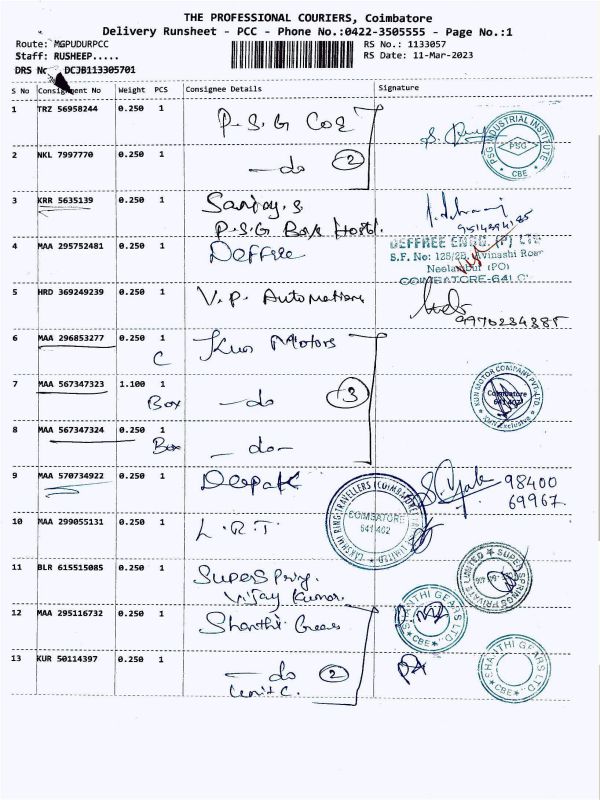 THE PROFESSIONAL COURIERS, Coimbatore
Delivery Runsheet - PCC - Phone No.:0422-3505555 - Page No.:1
Route: MGPUDURPCC
RS No.: 1133057
Staff: RUSHEEP.....
RS Date: 11-Mar-2023
DRS No DCJB113305701
S No Consignment No Weight PCS Consignee Details Signature
1 TRZ 56958244 0.250 1 P.S.G COE
PSG INDUSTRIAL INSTITUTE
PSG
CBE
2 NKL 7997770 0.250 1 —do 2
3 KRR 5635139 0.250 1 Sanjay.S
P.S.G Boys Hostel.
9514394185
4 MAA 295752481 0.250 1 Deffree
DEFFREE ENGG. (P) LTD
S.F. No: 128/2B, Avinashi Road
Neelambur (PO)
COIMBATORE-641
5 HRD 369249239 0.250 1 V.P. Automations
9970234385
6 MAA 296853277 0.250 1 Kun Motors
C
7 MAA 567347323 1.100 1 —do 3
Box
KUN MOTOR COMPANY PVT. LTD.
Coimbatore
641 402
8 MAA 567347324 0.250 1 —do—
Box
9 MAA 570734922 0.250 1 Deepak
98400
69967
10 MAA 299055131 0.250 1 L.R.T
LAKSHMI RING TRAVELLERS (COIMBATORE) LIMITED
COIMBATORE
641 402
11 BLR 615515085 0.250 1 Super Spring.
Vijay Kumar.
SUPER SPRINGS PRIVATE LIMITED
12 MAA 295116732 0.250 1 Shanthi Gears
SHANTHI GEARS LTD.
CBE
13 KUR 50114397 0.250 1 —do 2
Unit C.
SHANTHI GEARS LTD.
CBE